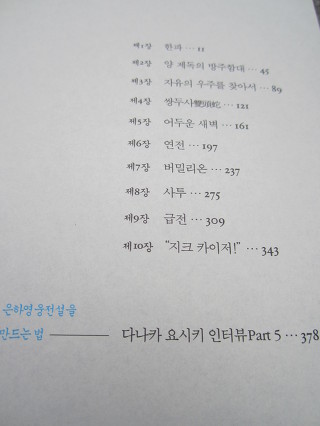 제1장 한파 … 11
제2장 양 제독의 방주함대 … 45
제3장 자유의 우주를 찾아서 … 89
제4장 쌍두사雙頭蛇 … 121
제5장 어두운 새벽 … 161
제6장 연전 … 197
제7장 버밀리온 … 237
제8장 사투 … 275
제9장 급전 … 309
제10장 “지크 카이저!” … 343
은하영웅전설을
만드는 법 다나카 요시키 인터뷰Part 5 … 378